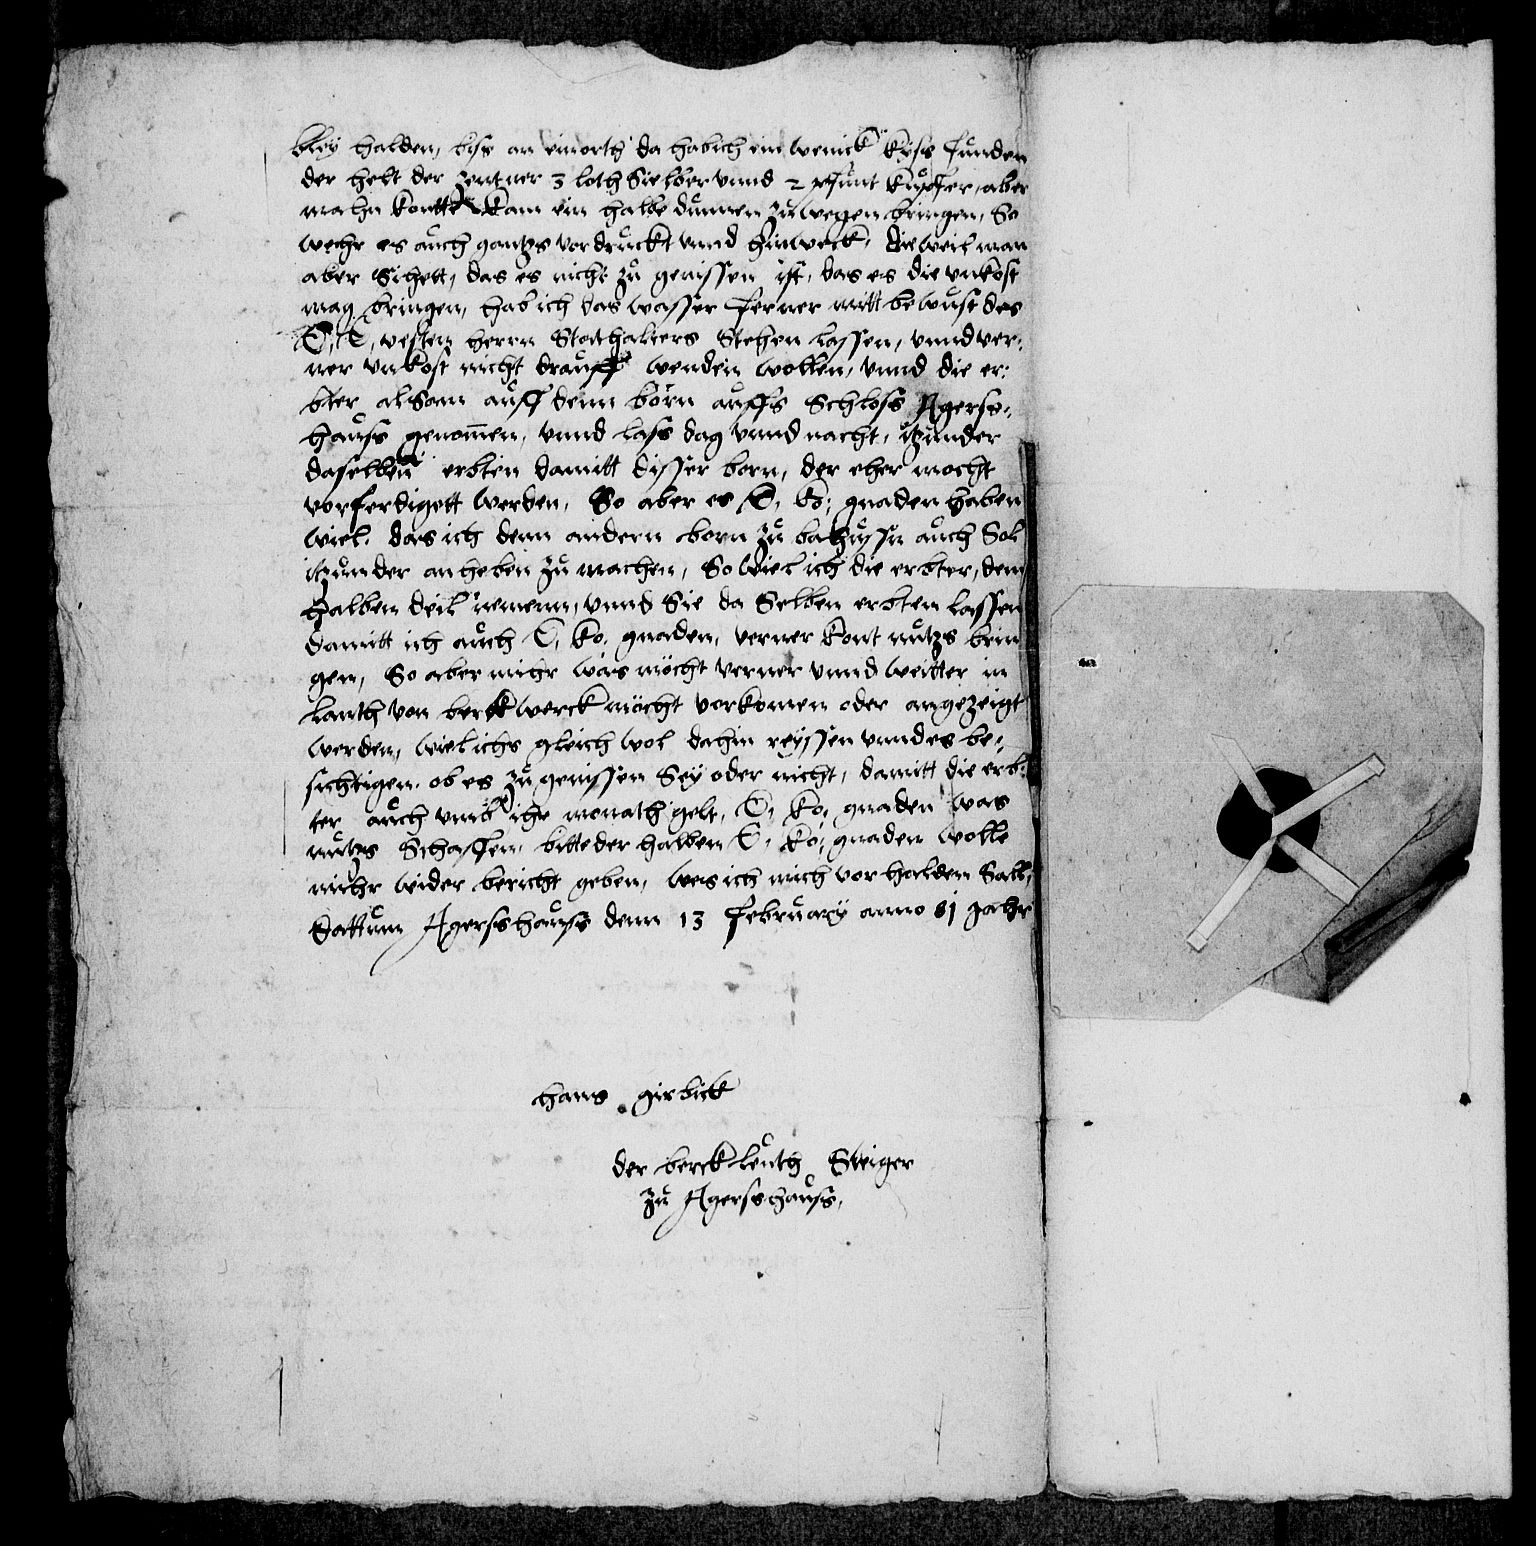 bley halden, biss an ein orth da hab ich ein wenick kyss funden
der helt der zentner 3 loth Sielber vnnd 2 pfunt kupfer, aber
mahn kontte kam ein halbe dunnen zu wegen bringen, So
wehr es auch gantzs vordruckt vnnd hinweck, dieweil man
aber Sihett, das es nicht zu genissen ist, das es die vnkost
mag bringen, hab ich das wasser ferner mitt bewust des
E, E, vesten herrn Stathalters Stehen lassen, vnnd ver:
ner vnkost nicht drauff wenden wollen, vnnd die er:
bter alsam auff denn born auffs Schloss Agerss,
hauss genomen, vnnd lass dag vnnd nacht, itzunder
daselben erbten damitt disser born, der eher mocht
vorferdigett werden, So aber es E, ko, gnaden haben
wiel, das ich denn andern born zu bahussn auch Sol
itzunder anheben zu machen, So wiel ich die erbter, dem
halben deil nemenn, vnnd Sie da Selben erbten lassen
damitt ich auch E, ko, gnaden, verner kont nutzs brin
gen, So aber mihr was möcht verner vnnd weitter in
Lanth von berckwerck möcht vorkomen oder angezeigt
werden, wiel ichs gleich wol dahin reyssen vnnd es be,
sichtigen, ob es zu genissen Sey oder nicht, damitt die erb:
ter auch vmb ihr monath gelt, E, ko, gnaden was
nutzs Schaffen, bitte der halben E, ko, gnaden wolle
mihr wider bericht geben, wes ich mich vorhalden Sall,
Dattum Agersshauss denn 13 February anno 81 Jahr
hans girbick
der berckleuth Steiger
zu Agersshauss,